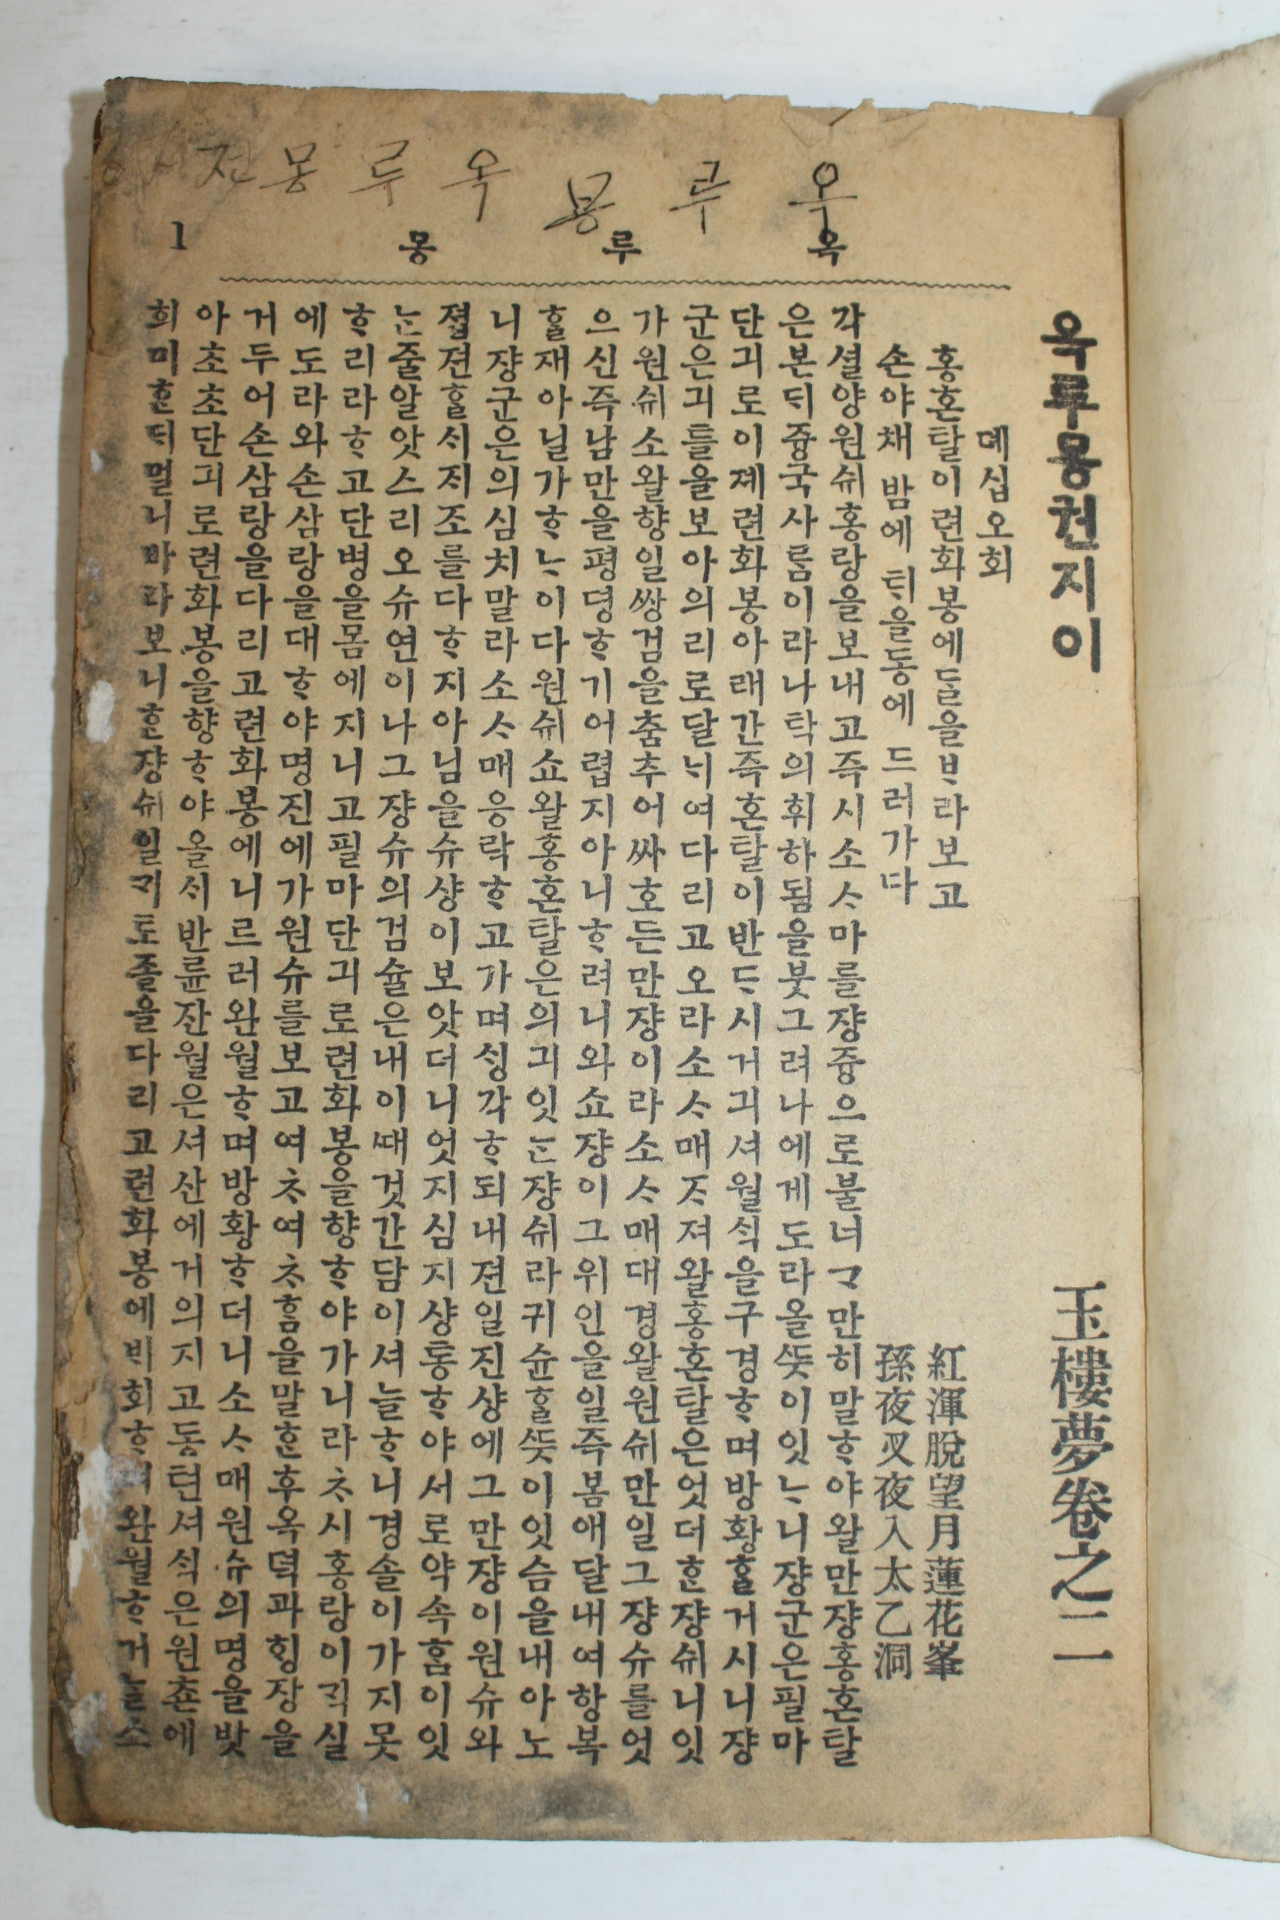 옥루몽
옥루몽젼
옥루몽
1
옥루몽권지이 玉樓夢卷之二
뎨십오회
홍혼탈이련화봉에ᄃᆞᆯ을ᄇᆞ라보고 紅渾脫望月蓮花峯
손야채밤에ᄐᆡ을동에드러가다 孫夜叉夜入太乙洞
각셜양원쉬홍랑을보내고즉시소ᄉᆞ마를쟝즁으로불너ᄀᆞ만히말ᄒᆞ야왈만쟝홍혼탈
은본ᄃᆡ즁국사ᄅᆞᆷ이라나탁의휘하됨을붓그려나에게도라올ᄯᅳᆺ이잇ᄂᆞ니쟝군은필마
단긔로이졔련화봉아래간즉혼탈이반ᄃᆞ시거긔셔월ᄉᆡᆨ을구경ᄒᆞ며방황ᄒᆞᆯ거시니쟝
군은긔틀을보아의리로달ᄂᆡ여다리고오라소ᄉᆞ매ᄌᆞ져왈홍혼탈은엇더ᄒᆞᆫ쟝쉬니잇
가원쉬소왈향일쌍검을춤추어싸호든만쟝이라소ᄉᆞ매대경왈원쉬만일그쟝슈를엇
으신즉남만을평뎡ᄒᆞ기어렵지아니ᄒᆞ려니와쇼쟝이그위인을일즉봄애달내여항복
ᄒᆞᆯ재아닐가ᄒᆞᄂᆞ이다원쉬쇼왈홍혼탈은의긔잇ᄂᆞᆫ쟝쉬라귀슌ᄒᆞᆯᄯᅳᆺ이잇슴을내아노
니쟝군은의심치말라소ᄉᆞ매응락ᄒᆞ고가며ᄉᆡᆼ각ᄒᆞ되내젼일진샹에그만쟝이원슈와
졉젼ᄒᆞᆯᄉᆡᄌᆡ조를다ᄒᆞ지아님을슈샹이보앗더니엇지심지샹통ᄒᆞ야서로약속홈이잇
ᄂᆞᆫ줄알앗스리오슈연이나그쟝슈의검슐은내이ᄯᅢ것간담이셔늘ᄒᆞ니경솔이가지못
ᄒᆞ리라ᄒᆞ고단병을몸에지니고필마단긔로련화봉을향ᄒᆞ야가니라ᄎᆞ시홍랑이ᄀᆡᆨ실
에도라와손삼랑을대ᄒᆞ야명진에가원슈를보고여ᄎᆞ여ᄎᆞᄒᆞᆷ을말ᄒᆞᆫ후옥뎍과ᄒᆡᆼ장을
거두어손삼랑을다리고련화봉에니르러완월ᄒᆞ며방황ᄒᆞ더니소ᄉᆞ매원슈의명을밧
아초초단긔로련화봉을향ᄒᆞ야올ᄉᆡ반륜잔월은셔산에거의지고동텬셔ᄉᆡᆨ은원쵼에
희미ᄒᆞᆫᄃᆡ멀니바라보니ᄒᆞᆫ쟝쉬일ᄀᆡ토졸을다리고련화봉에ᄇᆡ회ᄒᆞ며완월ᄒᆞ거늘소